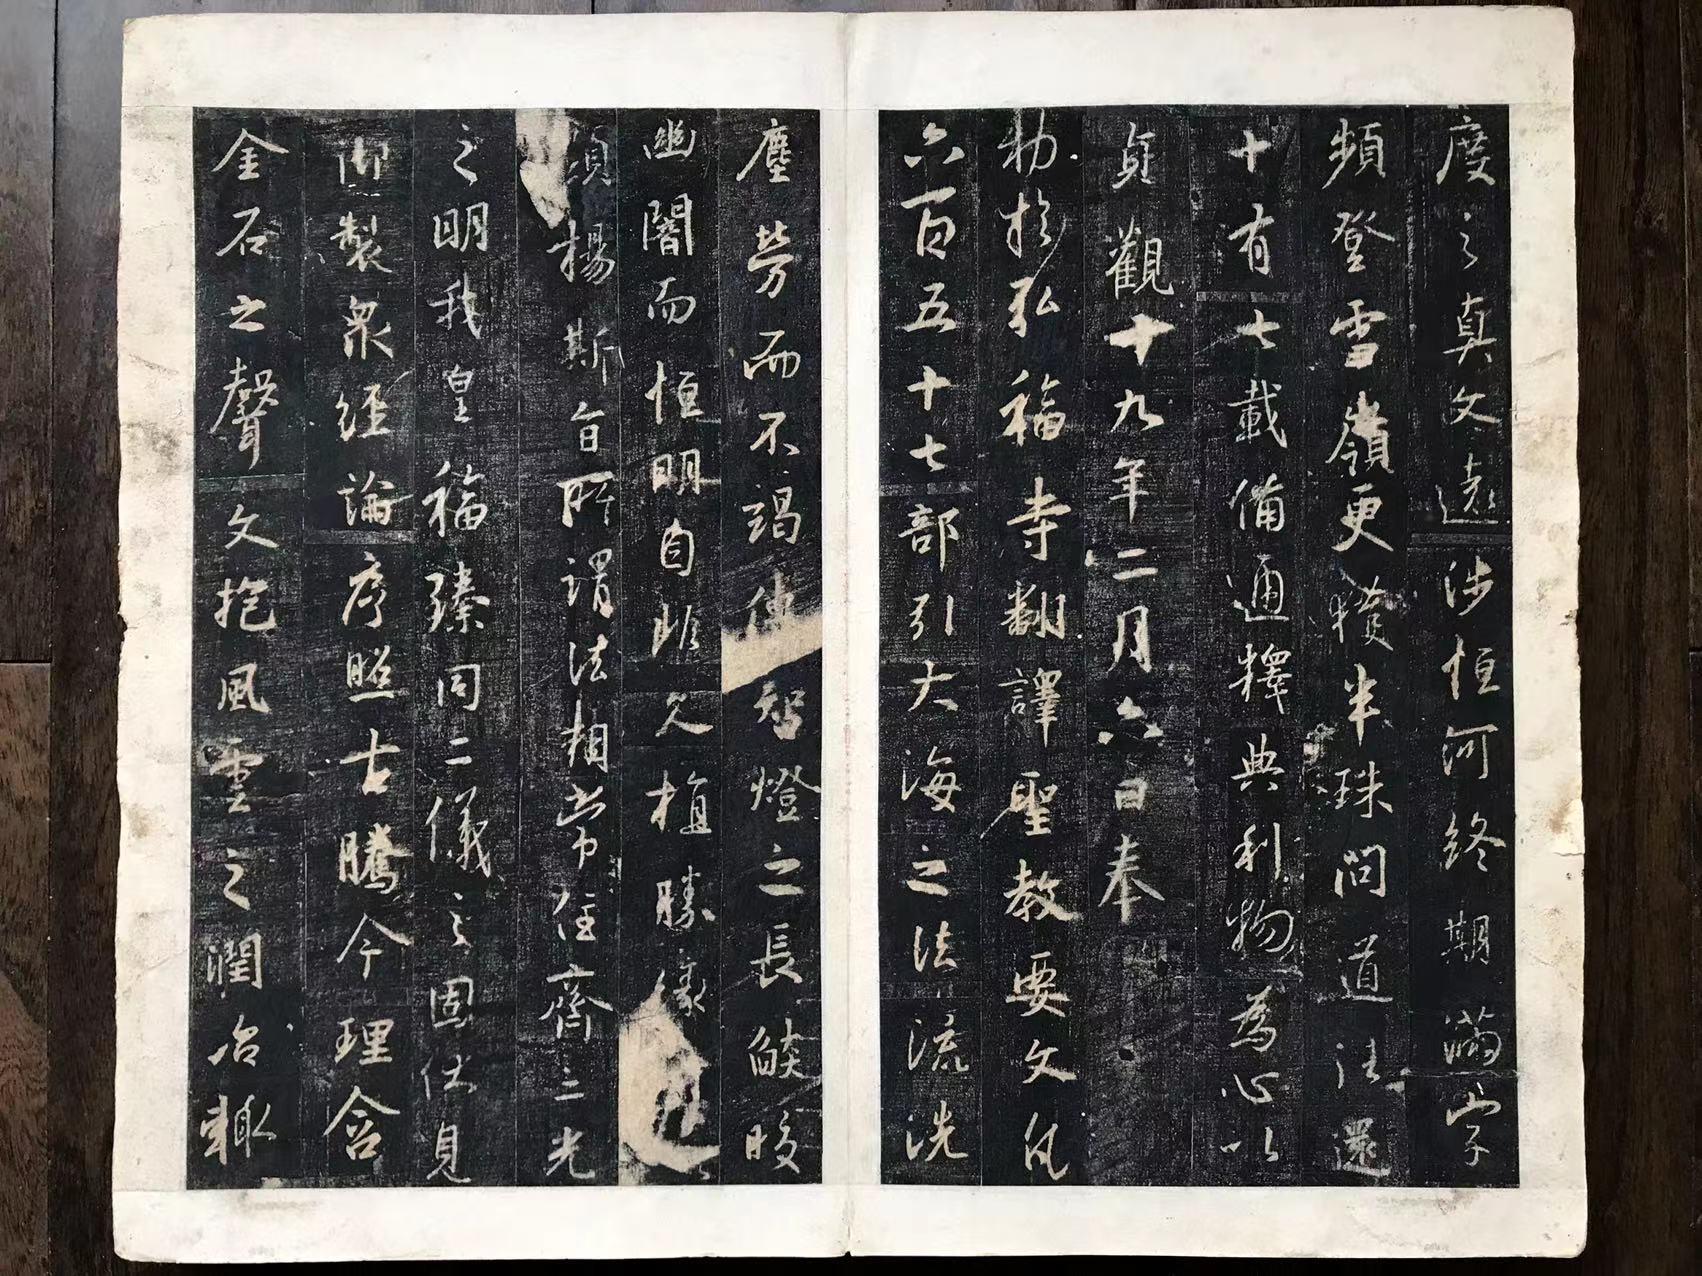 度之真文遠涉恒河終期滿字
頻登雪嶺更獲半珠問道往還
十有七載備通釋典利物為心以
貞觀十九年二月六日奉
勅於弘福寺翻譯聖教要文凡
六百五十七部引大海之法流洗
塵勞而不竭傳智燈之長焰皎
幽闇而恒明自非久植勝緣以
顯揚斯旨所謂法相常住齊三光
之明我皇福臻同二儀之固伏見
御製衆經論序照古騰今理含
金石之聲文抱風雲之潤治輒